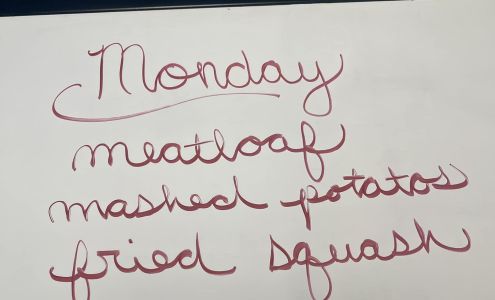 Monday
meatloaf
mashed potatos
fried squash